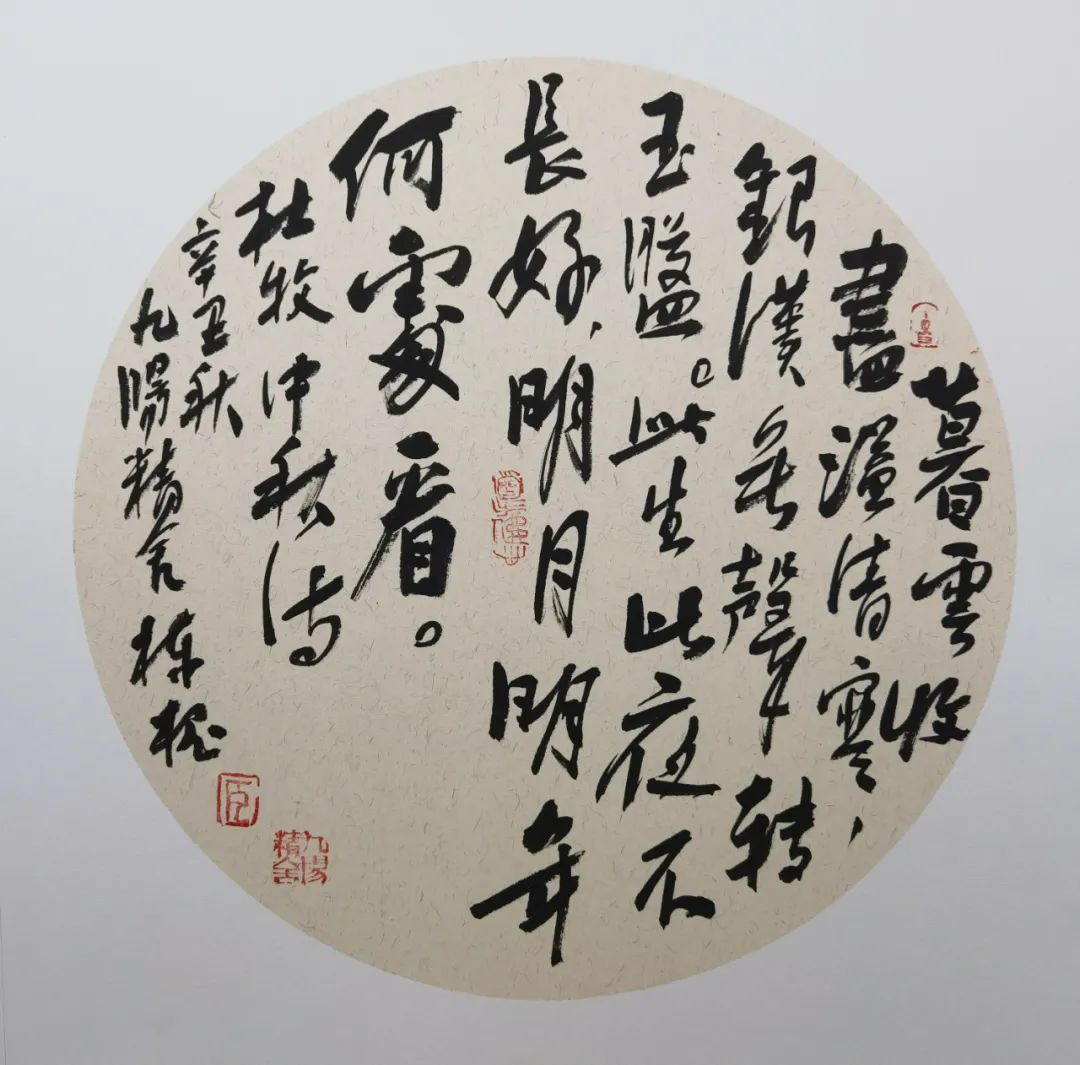 暮雲收
盡溢清寒，
銀漢無聲轉
玉盤。此生此夜不
長好，明月明年
何處看。
杜牧中秋诗
辛丑秋
九陽精舍栋
九陽精舍